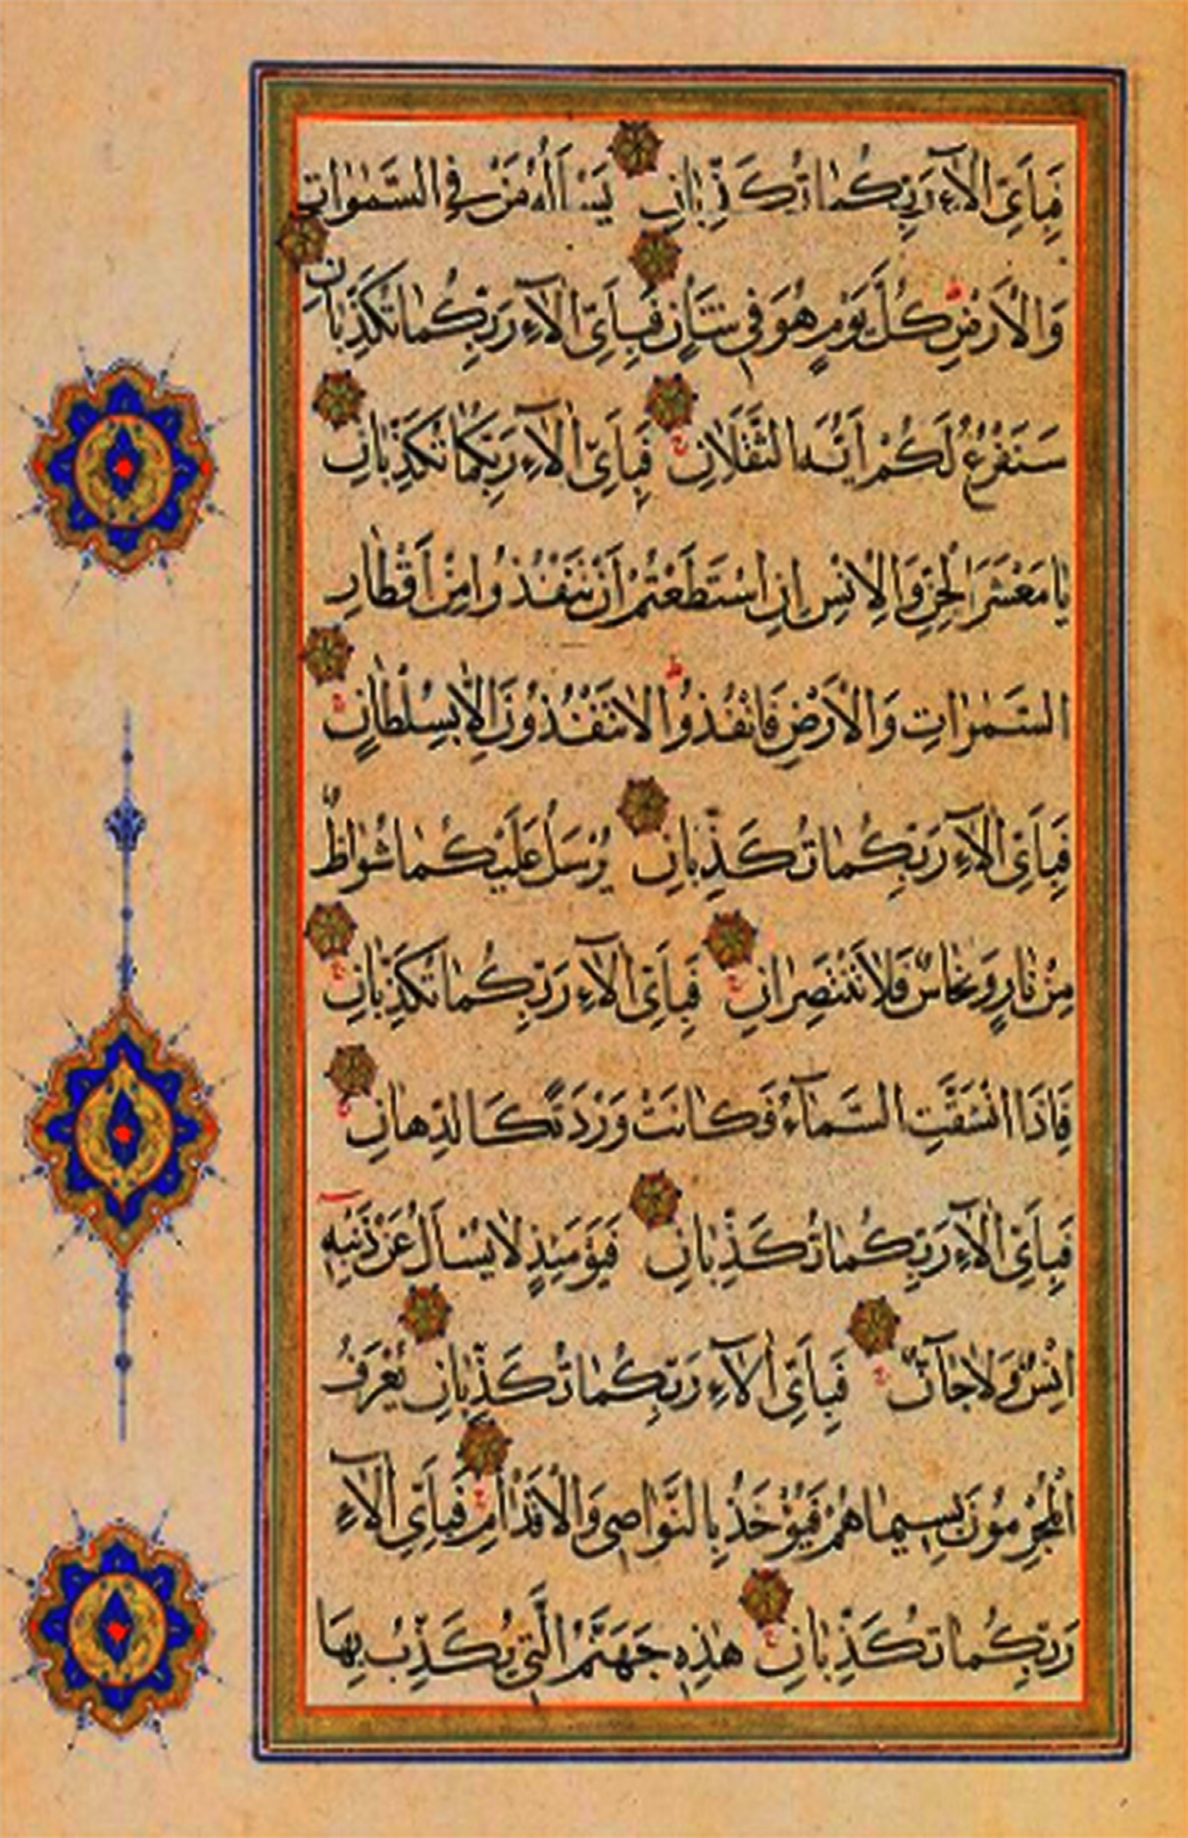 فَبِاَيِّ اٰلَاۤءِ رَبِّكُمَا تُكَذِّبَانِ يَسْـَٔلُهُ مَنْ فِي السَّمٰوَاتِ
وَالْاَرْضِ كُلَّ يَوْمٍ هُوَ فِي شَاْنٍ فَبِاَيِّ اٰلَاۤءِ رَبِّكُمَا تُكَذِّبَانِ
سَنَفْرُغُ لَكُمْ اَيُّهَ الثَّقَلَانِ فَبِاَيِّ اٰلَاۤءِ رَبِّكُمَا تُكَذِّبَانِ
يَا مَعْشَرَ الْجِنِّ وَالْاِنْسِ اِنِ اسْتَطَعْتُمْ اَنْ تَنْفُذُوا مِنْ اَقْطَارِ
السَّمٰوَاتِ وَالْاَرْضِ فَانْفُذُوا لَا تَنْفُذُونَ اِلَّا بِسُلْطَانٍ
فَبِاَيِّ اٰلَاۤءِ رَبِّكُمَا تُكَذِّبَانِ يُرْسَلُ عَلَيْكُمَا شُوَاظٌ
مِنْ نَارٍ وَنُحَاسٌ فَلَا تَنْتَصِرَانِ فَبِاَيِّ اٰلَاۤءِ رَبِّكُمَا تُكَذِّبَانِ
فَاِذَا انْشَقَّتِ السَّمَاۤءُ فَكَانَتْ وَرْدَةً كَالدِّهَانِ
فَبِاَيِّ اٰلَاۤءِ رَبِّكُمَا تُكَذِّبَانِ فَيَوْمَئِذٍ لَا يُسْـَٔلُ عَنْ ذَنْبِهِ
اِنْسٌ وَلَا جَاۤنٌّ فَبِاَيِّ اٰلَاۤءِ رَبِّكُمَا تُكَذِّبَانِ يُعْرَفُ
الْمُجْرِمُونَ بِسِيمَاهُمْ فَيُؤْخَذُ بِالنَّوَاصِي وَالْاَقْدَامِ فَبِاَيِّ اٰلَاۤءِ
رَبِّكُمَا تُكَذِّبَانِ هٰذِهِ جَهَنَّمُ الَّتِي يُكَذِّبُ بِهَا